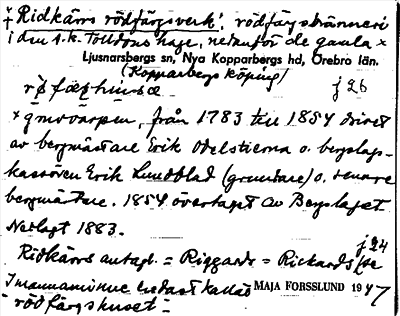 † Ridkärrs rödfärgsverk', rödfärgsbränneri
i den s.k. Tolldons hage, nedanför de gamla x
Ljusnarsbergs sn, Nya Kopparbergs hd, Örebro län.
(Kopparbergs köping)
j 26
x gruvvarpen, från 1783 till 1854 drivet
av bergmästare Erik Odelstierna o. bergslags-
kassören Erik Lundblad (grundare) o. senare
bergmästare. 1854 övertaget av Bergslaget.
Nedlagt 1883.
j 24
Ridkärrs antagl. = Riggards = Rickards
I mannaminne endast kallat
MAJA FORSSLUND 1947
"rödfärgshuset"